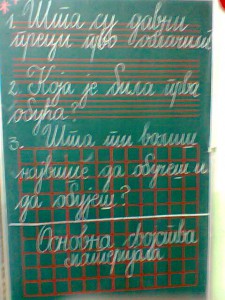 1. Шта су давни
преци прво облачили?
2. Која је била прва
обућа?
3. Шта ти волиш
највише да обучеш и
да обујеш?
Основна својства
материјала